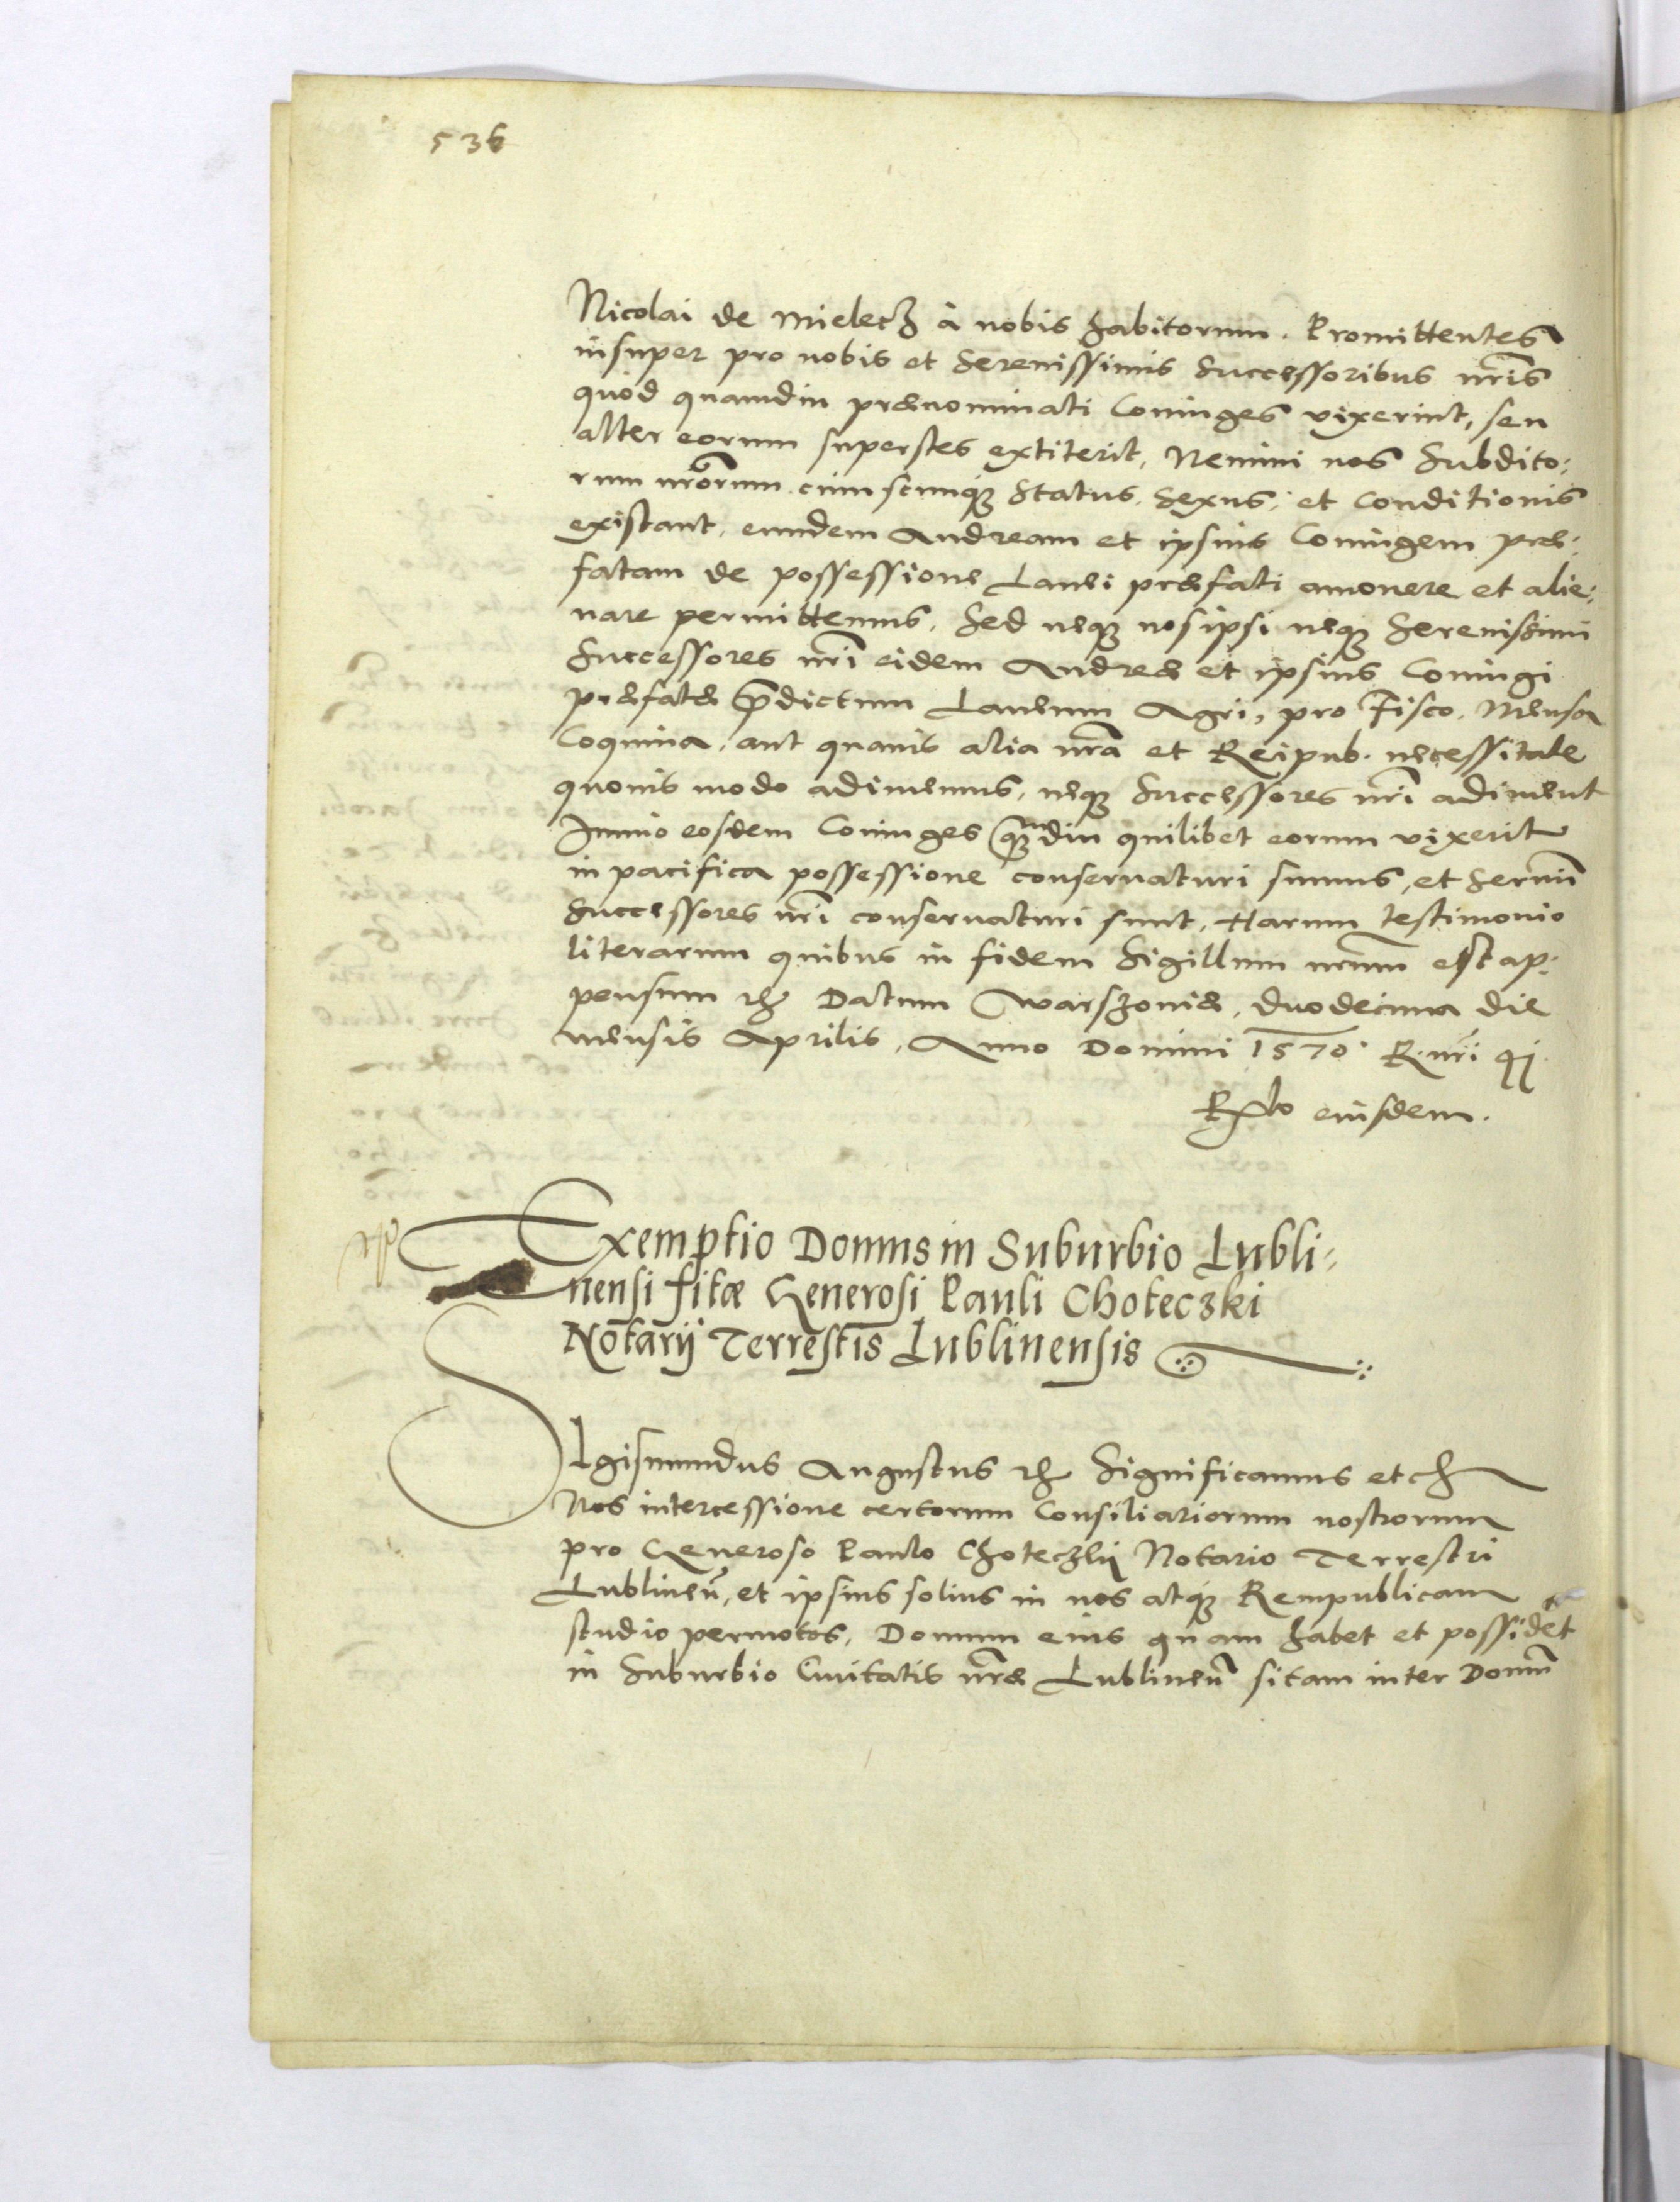 536
Nicolai de Mielecz à nobis habitorum. Promittentes
insuper pro nobis et Serenissimis Successoribus nr̃is
quòd quamdiu prænominati Coniuges vixerint, seu
alter eorum superstes extiterit, Nemini nos Subdito:
rum nr̃orum cuiuscunqȝ Status, Sexus, et Conditionis
existant, eundem Andream et ipsius Coniugem præ:
fatam de possessione Lanei præfati amouere et alie:
nare permittemus, Sed neqȝ nosipsi neqȝ Serenissimi
Successores nr̃i eidem Andreæ et ipsius Coniugi
præfatæ p̃dictum Laneum Agri, pro Fisco, Mensa
Coquina, aut quauis alia nr̃a et Reipub. necessitate
quouis modo adimemus, neqȝ Successores nr̃i adiment
Immo eosdem Coniuges quamdiu quilibet eorum vixerit
in pacifica possessione conseruaturi sumus, et Sermi
Successores nr̃i conseruaturi sunt, Harum testimonio
literarum quibus in fidem Sigillum nr̃um est ap:
pensum etc Datum Warszouiæ, duodecima die
mensis Aprilis, Anno Domini 1570. R. nr̃i 41
Rlo eiusdem.
Exemptio Domus in Suburbio Lubli:
nensi sitæ Generosi Pauli Choteczki
Notarij Terrestris Lublinensis
SIgismundus Augustus etc Significamus etc
Nos intercessione certorum Consiliariorum nostrorum
pro Generoso Paulo Choteczki Notario Terrestri
Lublineñ, et ipsius solius in nos atqȝ Rempublicam
studio permotos, Domum eius quam habet et possidet
in Suburbio Ciuitatis nr̃æ Lublineñ sitam inter Domũ